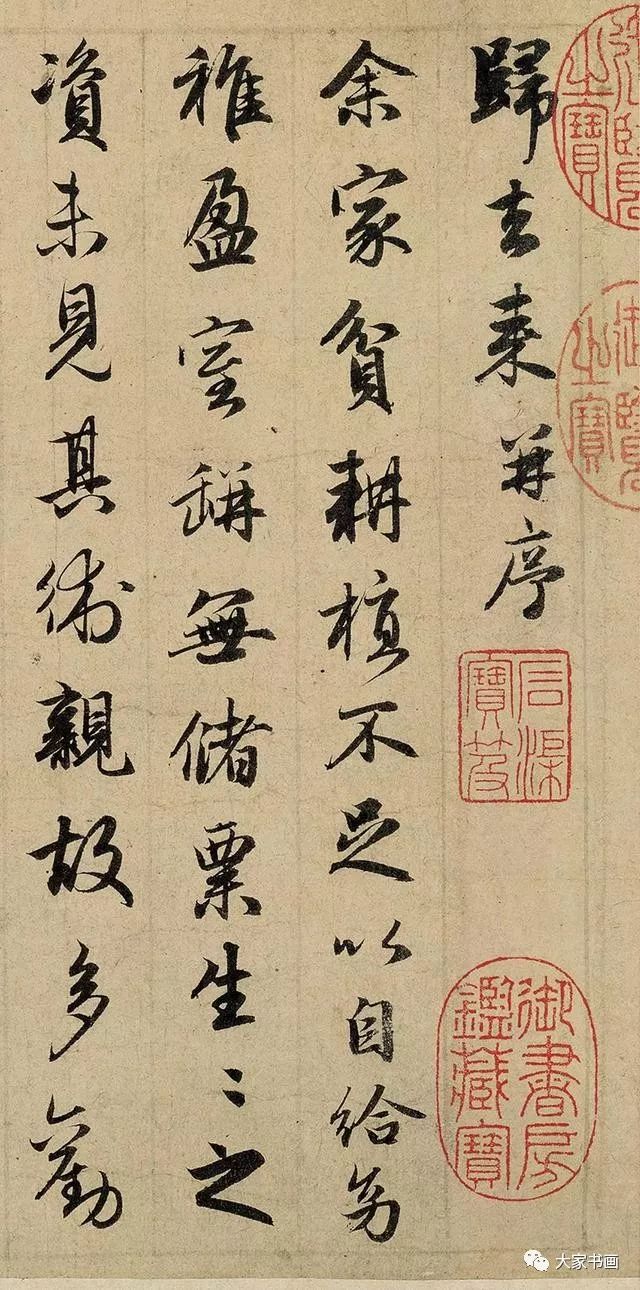 歸去来并序
余家貧耕植不足以自給幼
稚盈室缾無儲粟生〻之
資未見其術親故多勸
御覽之寶
石渠寶笈
御書房鑑藏寶
大家书画